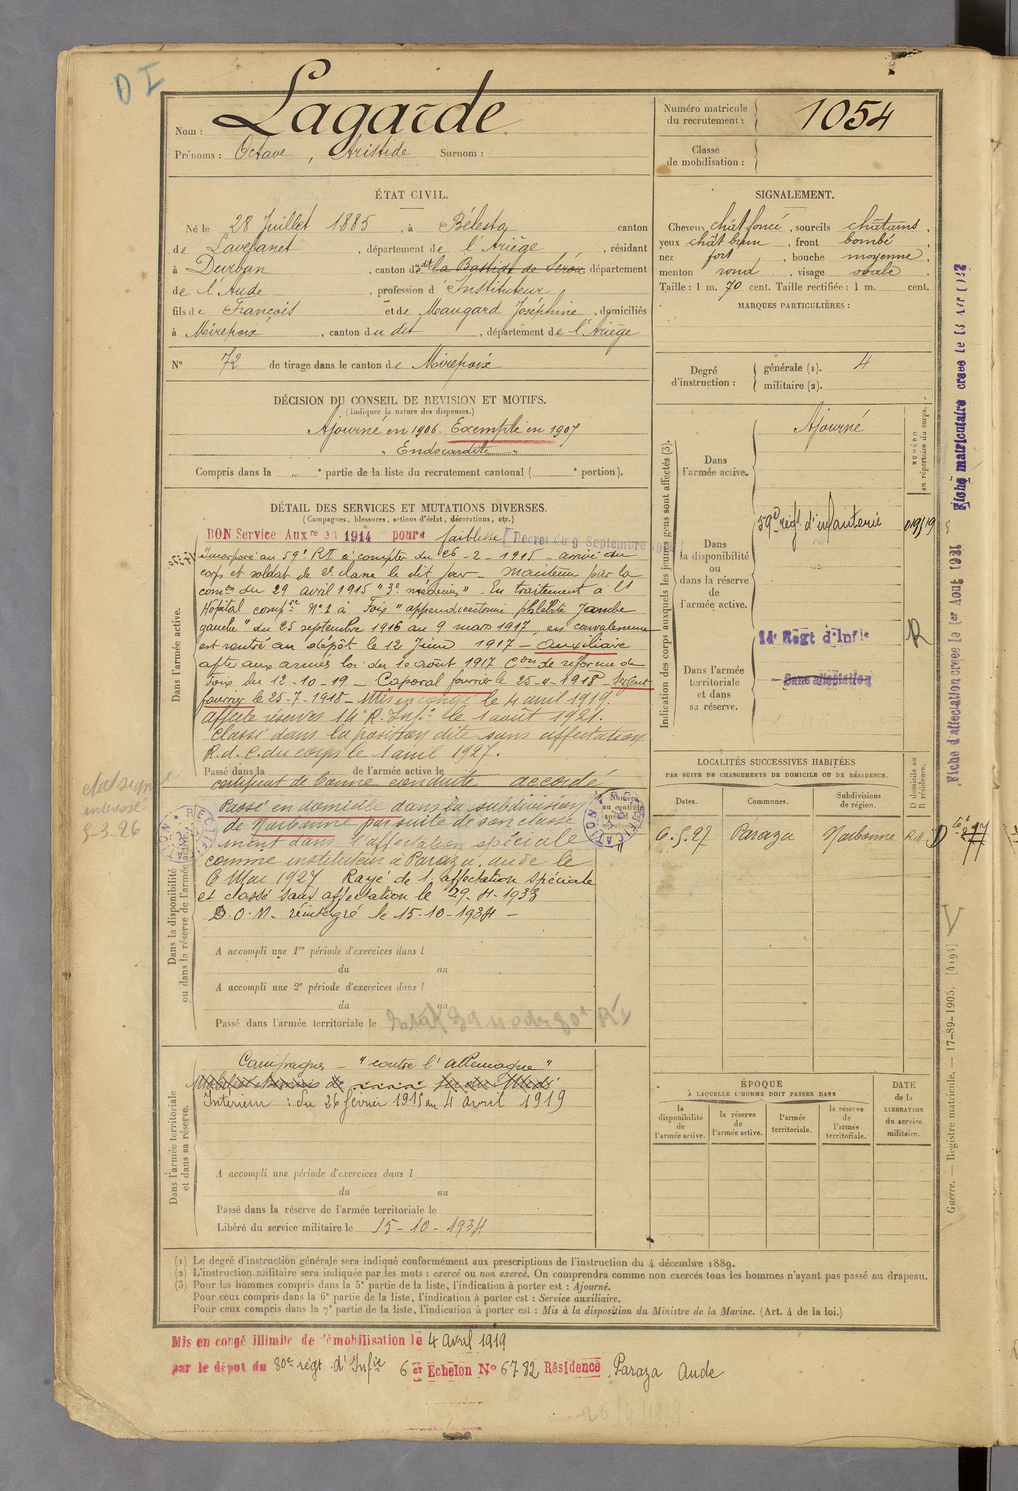 D I
Nom : Lagarde
Prénoms : Octave, Aristide Surnom :
Numéro matricule
du recrutement : 1054
Classe
de mobilisation :
ÉTAT CIVIL.
Né le 28 Juillet 1885, à Bélesta canton
de Lavelanet, département de l'Ariège, résidant
à Durban, canton de dit la Bastide de Sérou département
de l'Aude, profession d'Instituteur
fils de François et de Maugard Joséphine, domiciliés
à Mirepoix, canton du dit, département de l'Ariège
N° 72 de tirage dans le canton de Mirepoix
SIGNALEMENT.
Cheveux chât foncé, sourcils châtains,
yeux chât brun, front bombé,
nez fort, bouche moyenne,
menton rond, visage ovale
Taille : 1 m. 70 cent. Taille rectifiée : 1 m. cent.
MARQUES PARTICULIÈRES :
Degré
d'instruction :
générale (1). 4
militaire (2).
DÉCISION DU CONSEIL DE REVISION ET MOTIFS.
(Indiquer la nature des dispenses.)
Ajourné en 1906. Exempté en 1907
"Endocardite"
Compris dans la " ° partie de la liste du recrutement cantonal ( ° portion).
DÉTAIL DES SERVICES ET MUTATIONS DIVERSES.
(Campagnes, blessures, actions d'éclat, décorations, etc.)
BON Service Aux re en 1914 pour faiblesse [Décret du 9 Septembre
Dans l'armée active.
Incorporé au 59e RI à compter du 26-2-1915 arrivé au
corps et soldat de 2e classe le dit jour - Maintenu par la
com on du 29 avril 1915 "3e médecins" En traitement à l'
Hôpital comp re N°1 à Foix "appendicectomie phlébite Jambe
gauche" du 25 septembre 1916 au 9 mars 1917 en convalescence
est rentré au dépôt le 12 Juin 1917 - Auxiliaire
apte aux armées loi du 10 août 1917 Con de réforme de
Foix du 12-10-19 - Caporal fourrier le 25-4-1918 - Sergent
fourrier le 25-7-1918 - Mis en congé le 4 avril 1919.
affecté réserves 14e R. Inf ie le 1 août 1921.
Classé dans la position dite sans affectation
R. d. C. du corps le 1 avril 1927.
Passé dans la de l'armée active le
certificat de bonne conduite accordé
Numéro
au contrôle
spécial
Dans la disponibilité
ou dans la réserve de l'armée active.
Passé en domicile dans la subdivision
de Narbonne par suite de son classe
ment dans l'affectation spéciale
comme instituteur à Paraza, aude le
6 Mai 1927 Rayé de l'affectation spéciale
et classé sans affectation le 29-4-1933
D.O.M. réintégré le 15-10-1934 -
A accompli une 1re période d'exercices dans l
du au
A accompli une 2e période d'exercices dans l
du au
Passé dans l'armée territoriale le
Dans l'armée territoriale
et dans sa réserve.
Campagnes - "contre l'allemagne"
Intérieur : du 26 février 1915 au 4 avril 1919
A accompli une période d'exercices dans l
du au
Passé dans la réserve de l'armée territoriale le
Libéré du service militaire le 15-10-1934
Indication des corps auxquels les jeunes gens sont affectés (3).
NUMÉRO
au répertoire du corps.
Dans
l'armée active.
Ajourné
Dans
la disponibilité
ou
dans la réserve
de
l'armée active.
59e régt d'infanterie
Dans l'armée
territoriale
et dans
sa réserve.
14e Régt d'Inf ie
R
Sans affectation
LOCALITÉS SUCCESSIVES HABITÉES
PAR SUITE DE CHANGEMENTS DE DOMICILE OU DE RÉSIDENCE.
D domicile ou
R résidence.
Dates. Communes. Subdivisions
de région.
6.5.27 Paraza Narbonne D
ÉPOQUE
À LAQUELLE L'HOMME DOIT PASSER DANS
la
disponibilité
de
l'armée active.
la réserve
de
l'armée active.
l'armée
territoriale.
la réserve
de
l'armée
territoriale.
DATE
de la
LIBÉRATION
du service
militaire.
Fiche matriculaire créée le
Fiche d'affectation créée le 1er Aout 1931
Guerre. — Registre matricule. — 17-89-1905. [4194]
V
5-3-26
(1) Le degré d'instruction générale sera indiqué conformément aux prescriptions de l'instruction du 4 décembre 1889.
(2) L'instruction militaire sera indiquée par les mots : exercé ou non exercé. On comprendra comme non exercés tous les hommes n'ayant pas passé au drapeau.
(3) Pour les hommes compris dans la 5e partie de la liste, l'indication à porter est : Ajourné.
Pour ceux compris dans la 6e partie de la liste, l'indication à porter est : Service auxiliaire.
Pour ceux compris dans la 7e partie de la liste, l'indication à porter est : Mis à la disposition du Ministre de la Marine. (Art. 4 de la loi.)
Mis en congé illimité de démobilisation le 4 Avril 1919
par le dépôt du 80e régt d'Inf ie 6 et Echelon N° 6782 Résidence Paraza Aude